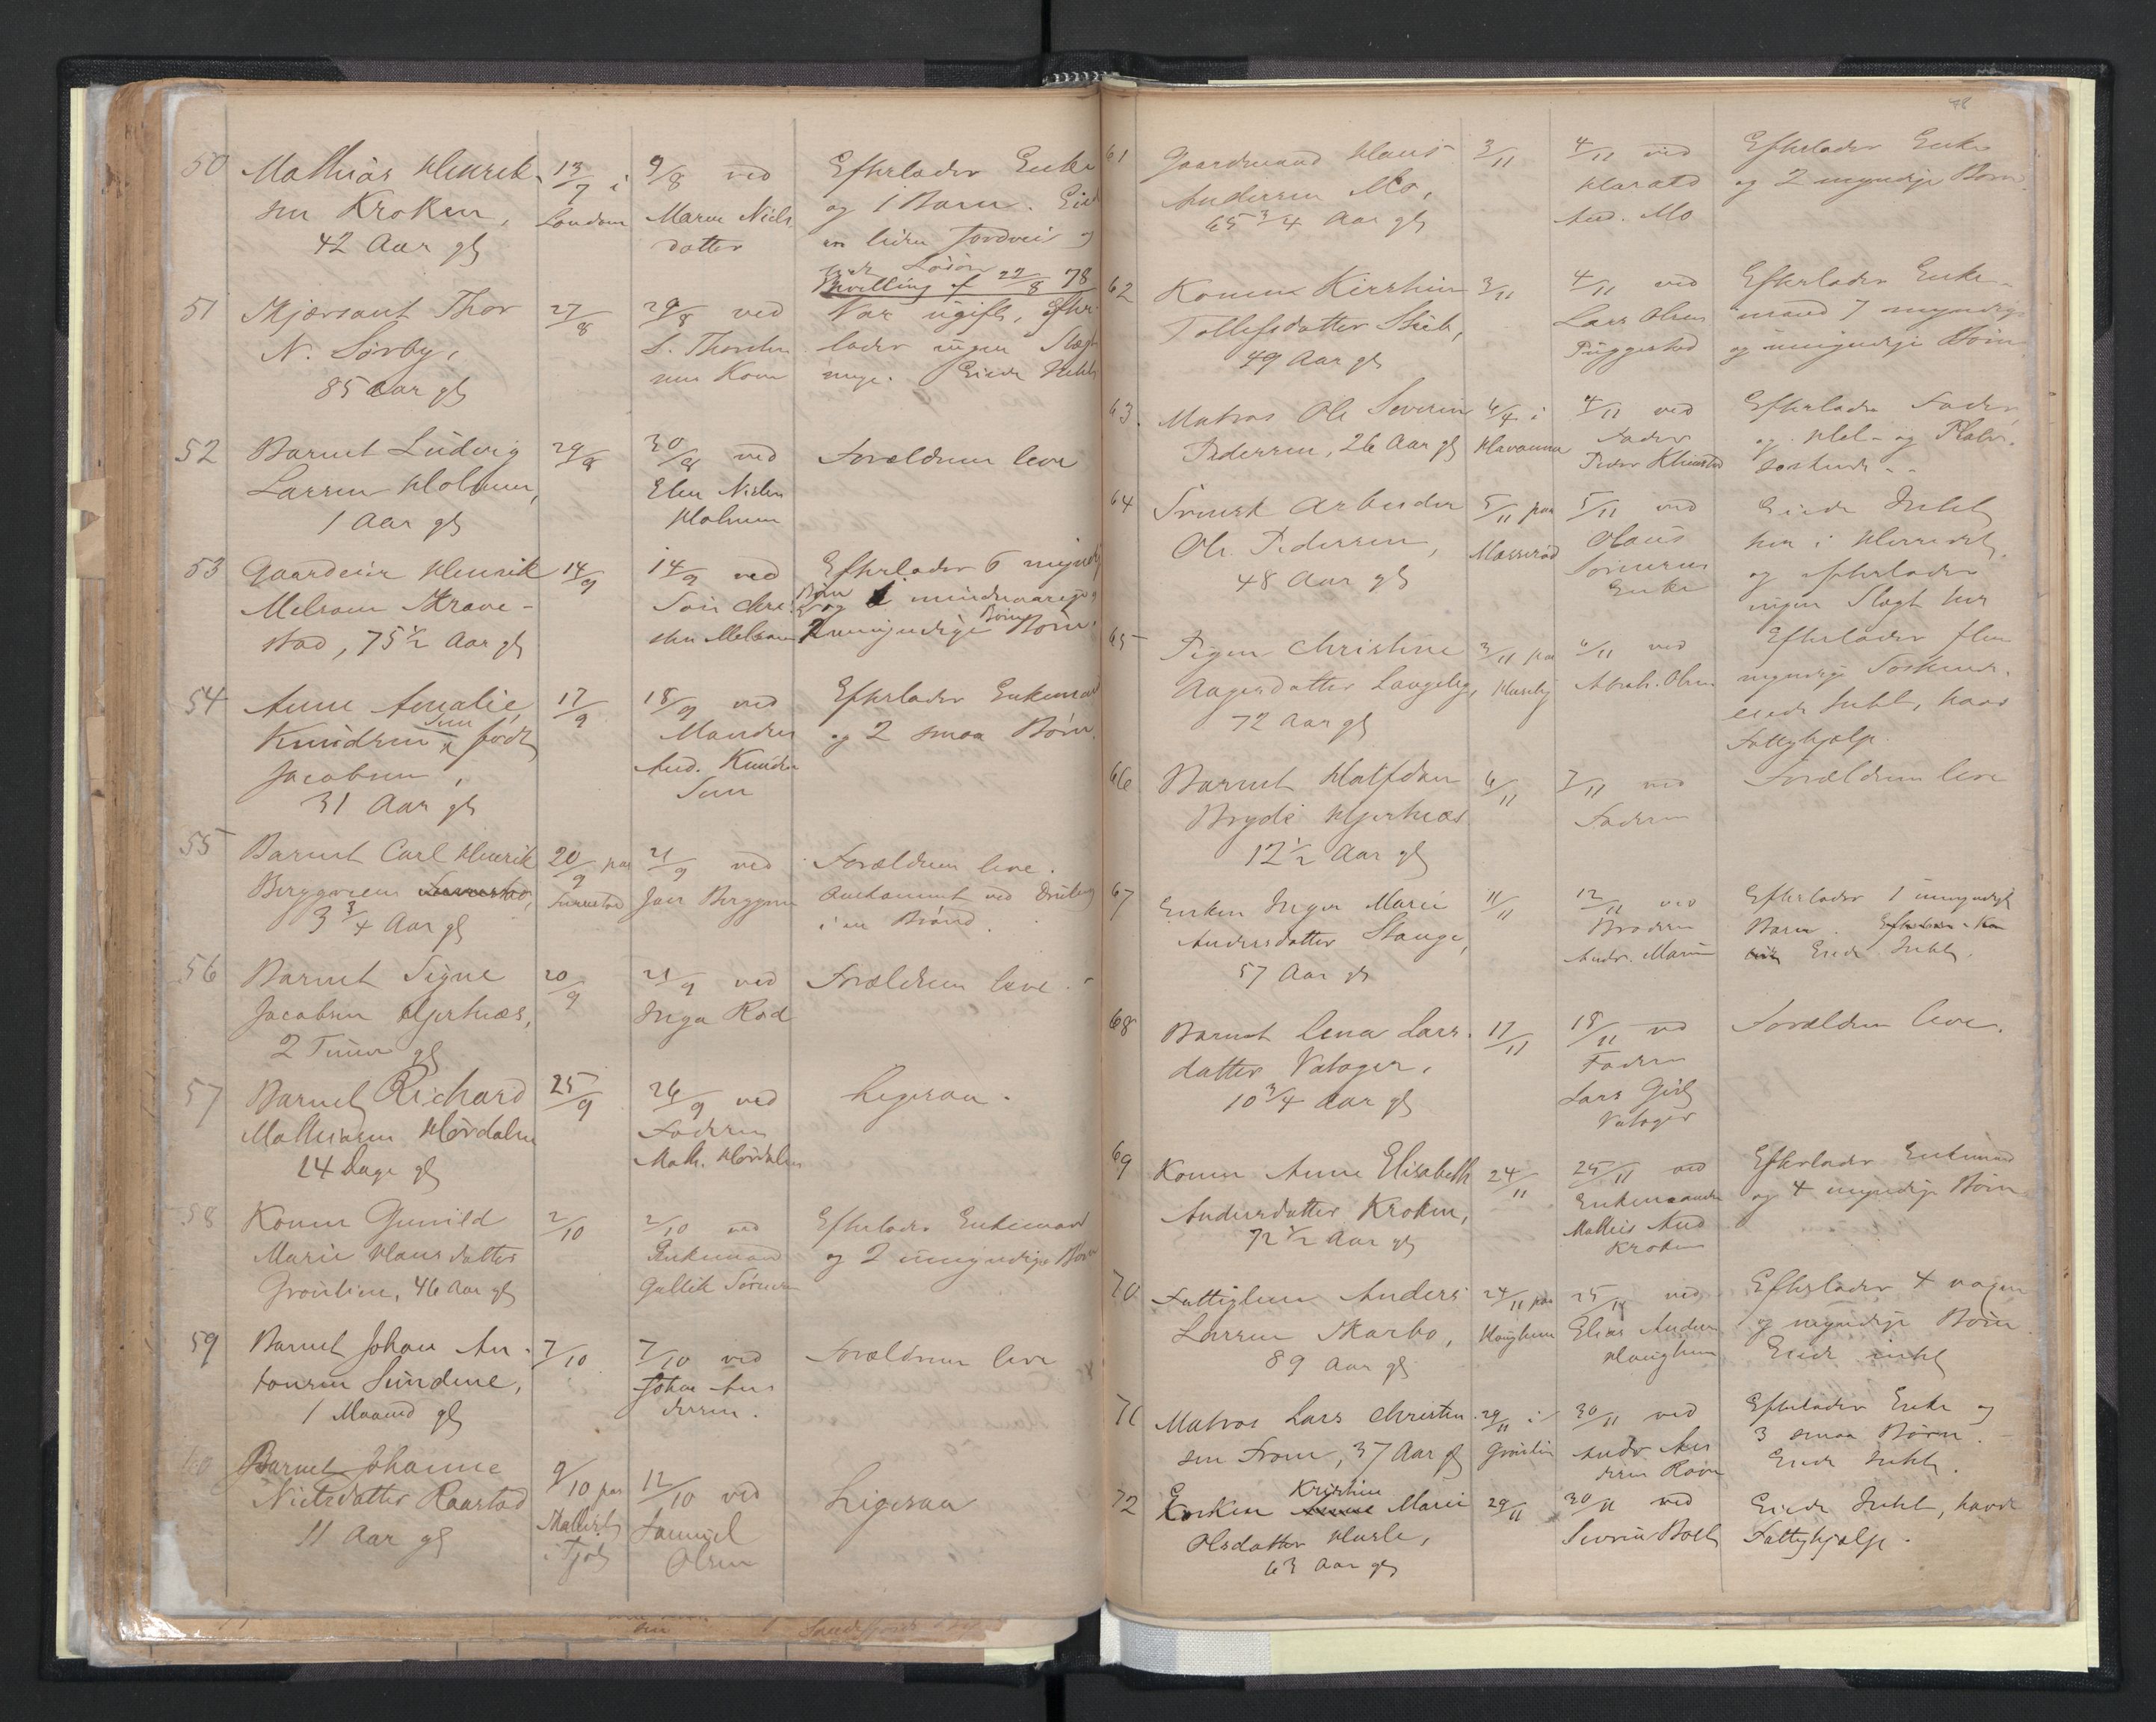 50 Mathias Henrik- 13/7 i 9/8 ved Efterlader Enke
sen Kroken, London Maren Niels og 1 Barn. Eied
42 Aar gl datter en liden Jordvei og
Løsøre
Skvelling af 22/8 78
51 Thor 27/8 29/8 ved Var ugift, efter-
N. Sørby, S. Thorsten lader ingen Slægt
85 Aar gl Eiede Intet
52 Barnet Ludvig 29/8 30/8 ved Forældrene leve
Larsen Holmen, Elen Nielsen
1 Aar gl Holmen
53 Gaardeier Henrik 14/9 14/9 ved Efterlader 6 myndig
Melsom Skrave- Børn og mindreaarige
stad, 75½ Aar gl Melsom umyndige Børn
54 Anne Amalie 17/9 18/9 ved Efterlader Enkemand
Knudsen Sem født Manden og 2 smaa Børn.
Jacobsen, And. Knudsen
31 Aar gl Sem
55 Barnet Carl Henrik 20/9 paa 21/9 ved Forældrene leve.
Berggreen Furustad Joes Berggren Omkommet ved Drukning
3¾ Aar gl i en Brønd.
56 Barnet Signe 20/9 21/9 ved Forældrene leve.
Jacobsen Hjertnæs, Inga Rød
2 Timer gl
57 Barnet Richard 25/9 26/9 ved Ligesaa.
Mathiasen Hørdalen Faderen
14 Dage gl Math. Hørdalen
58 Konen Gunild 2/10 2/10 ved Efterlader Enkemand
Marie Hansdatter Enkemand og 2 umyndige Børn
Grønlien, 46 Aar gl Gullik Sørensen
59 Barnet Johan An- 7/10 7/10 ved Forældrene leve
tonsen Sundene, Johan An
1 Maaned gl dersen.
60 Barnet Johanne 9/10 paa 12/10 ved Ligesaa
Nielsdatter Raastad Samuel
11 Aar gl i Tjøl Olsen
48
61 Gaardmand Hans 3/11 4/11 ved Efterlader Enke
Andersen Mo, Harald og 2 myndige Børn.
65¾ Aar gl And. Mo
62 Konen Kirstine 3/11 4/11 ved Efterlader Enke-
Tollefsdatter Stub, Lars Olsen mand 7 myndige
49 Aar gl Puggestad og umyndige Børn
63. Matros Ole Severin 4/4 i 4/11 ved Efterlader Fader
Pedersen, 26 Aar gl Havanna Fader og Hel- og Halv-
Peder Klinestad søskende
64 Svensk Arbeider 5/11 paa 5/11 ved Eiede Intet
Ole Pedersen, Massерød Olaus her i Herredet
48 Aar gl Sørensens og efterlader
Enke ingen Slægt her
65 Pigen Christine 3/11 paa 6/11 ved Efterlader flere
Aagesdatter Langeby, Huseby Abrah. Olsen myndige Søskende.
72 Aar gl eiede Intet, havd
Fattighjælp.
66 Barnet Halfdan 6/11 7/11 ved Forældrene leve
Bryde Hjertnæs Faderen
12½ Aar gl
67 Enken Inger Marie 11/11 12/11 ved Efterlader 1 umyndigt
Andersdatter Stange, Broderen Barn.
57 Aar gl Andr. Marum Eiede Intet.
68 Barnet Lena Lars- 17/11 18/11 ved Forældrene leve.
datter Valager, Faderen
10¾ Aar gl Lars Giil
Valager
69 Konen Anne Elisabeth 24/11 25/11 ved Efterlader Enkemand
Andersdatter Kroken, Enkemanden og 4 myndige Børn
72½ Aar gl Mathis And
Kroken
70 Fattiglem Anders 24/11 paa 25/11 ved Efterlader 4 voxne
Larsen Skarbo, Haughem Elias Andersen og myndige Børn
89 Aar gl Haughem Eiede intet
71 Matros Lars Christen 29/11 i 30/11 ved Efterlader Enke og
sen From, 37 Aar gl Grønlien Andr. An 3 smaa Børn.
dersen Ravn Eiede Intet.
72 Enken Kristine Anne Marie 29/11 30/11 ved Eiede Intet, havde
Olsdatter Hasle, Severin Fattighjælp.
63 Aar gl